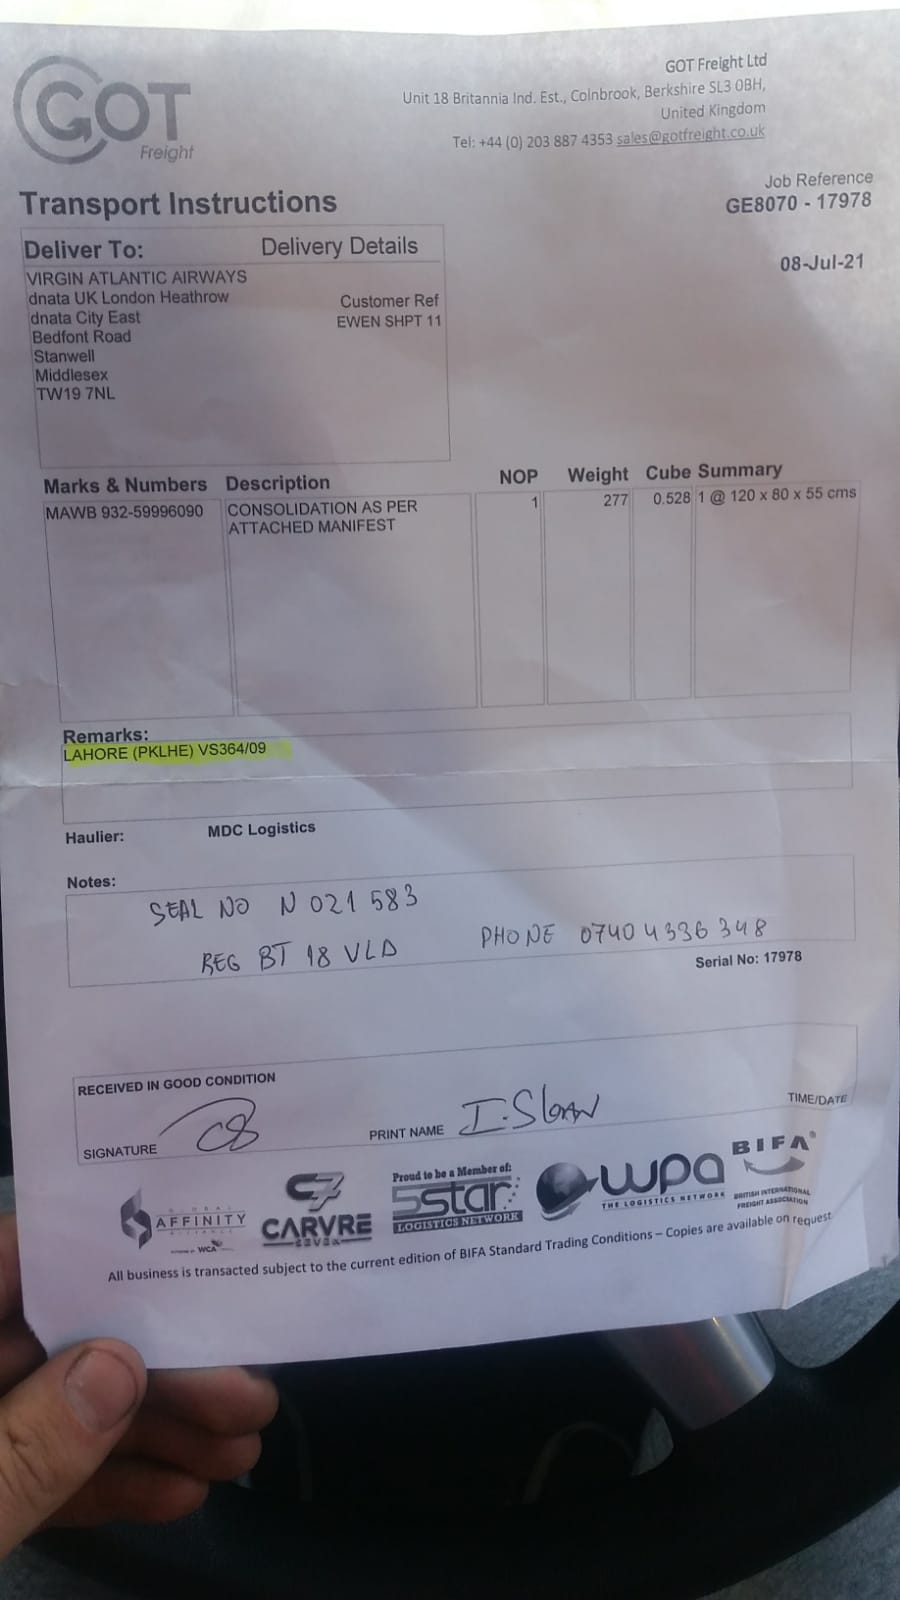 GOT
Freight
GOT Freight Ltd
Unit 18 Britannia Ind. Est., Colnbrook, Berkshire SL3 0BH,
United Kingdom
Tel: +44 (0) 203 887 4353 sales@gotfreight.co.uk
Transport Instructions
Job Reference
GE8070 - 17978
08-Jul-21
Deliver To: Delivery Details
VIRGIN ATLANTIC AIRWAYS
dnata UK London Heathrow
dnata City East
Bedfont Road
Stanwell
Middlesex
TW19 7NL
Customer Ref
EWEN SHPT 11
Marks & Numbers Description NOP Weight Cube Summary
MAWB 932-59996090 CONSOLIDATION AS PER 1 277 0.528 1 @ 120 x 80 x 55 cms
ATTACHED MANIFEST
Remarks:
LAHORE (PKLHE) VS364/09
Haulier: MDC Logistics
Notes:
SEAL NO N 021 583
REG BT 18 VLD PHONE 0740 4336 348
Serial No: 17978
RECEIVED IN GOOD CONDITION
SIGNATURE PRINT NAME I. Sloan TIME/DATE
GLOBAL
AFFINITY
ALLIANCE
WCA
CARVRE
SEVEN
Proud to be a Member of:
5star
LOGISTICS NETWORK
wpa
THE LOGISTICS NETWORK
BIFA®
BRITISH INTERNATIONAL
FREIGHT ASSOCIATION
All business is transacted subject to the current edition of BIFA Standard Trading Conditions – Copies are available on request